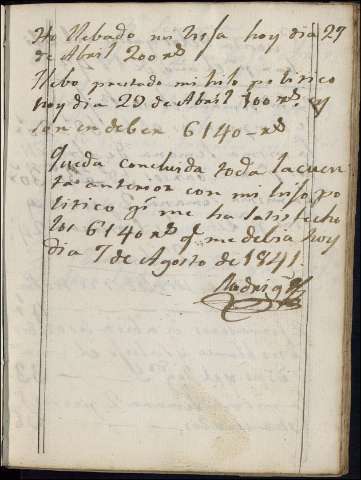 Ho llebado mi Ysa hoy dia 27
de Abril 200 rs
Llebo prestado mi hilo politico
hoy dia 29 de Abril 300 rs. y
son en deber 6140-rs
Queda concluida toda la cuen
ta anterior con mi hilo po
litico qe me ha satisfecho
los 6140 rs qe me debia hoy
dia 7 de Agosto de 1841.
Rodrigz